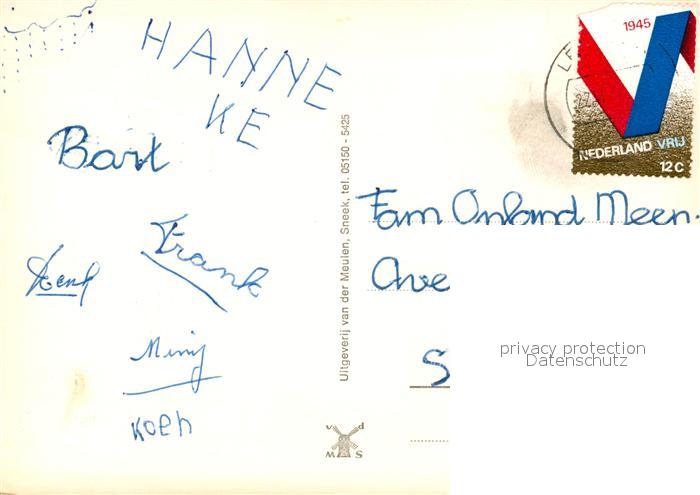 HANNE
KE
Bart
Frank
Henk
Miny
Koen
Uitgeverij van der Meulen, Sneek, tel. 05150 - 5425
v d
M S
1945
NEDERLAND VRIJ
12 C
Fam Onland Meen.
S
privacy protection
Datenschutz